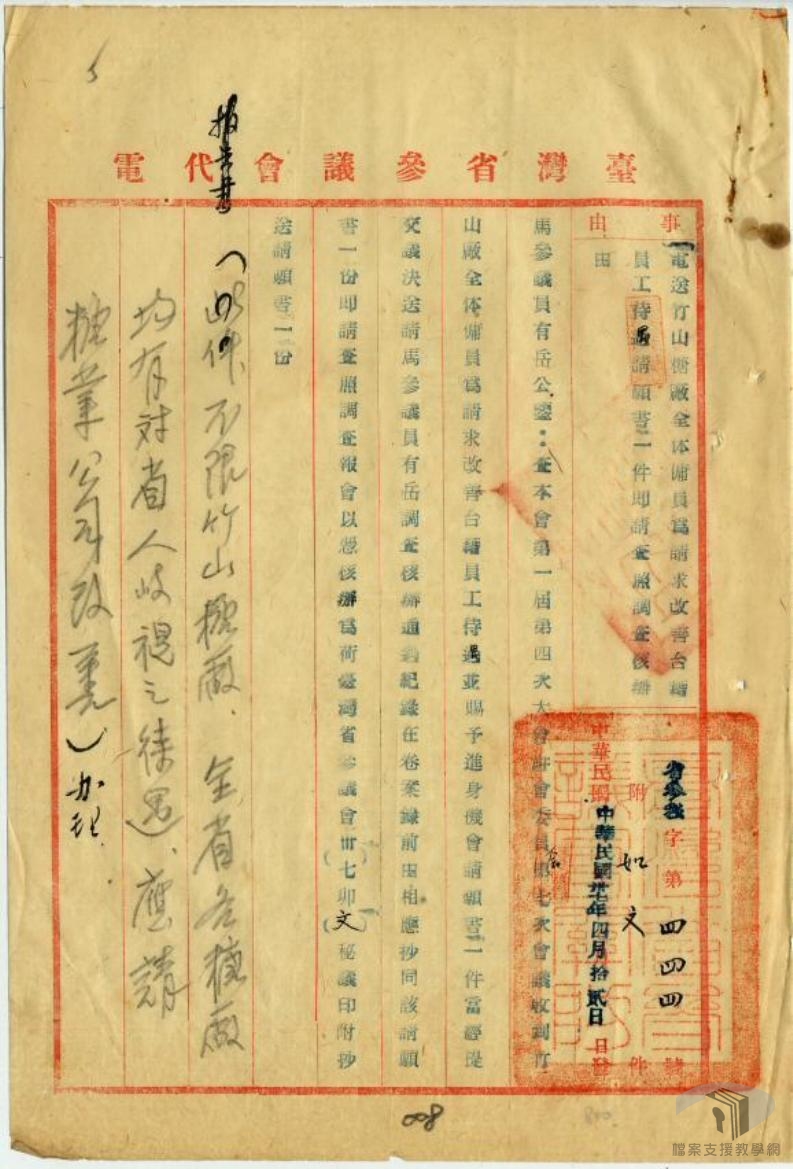 臺灣省參議會代電
事由
電送竹山糖廠全体傭員爲請求改善台籍
員工待遇請願書一件即請查照調查核辦
由
省參議字第四四四號
附件 如文
中華民國卅七年四月拾貳日
日發
馬參議員有岳公鑒：查本會第一屆第四次大會駐會委員第七次會議收到竹
山廠全体傭員爲請求改善台籍員工待遇並賜予進身機會請願書一件當經提
交議決送請馬參議員有岳調查核辦通過紀錄在卷案錄前由相應抄同該請願
書一份即請查照調查報會以憑核辦爲荷臺灣省參議會卅七卯文秘議印附抄
送請願書一份
報告書
（此件不限竹山糖廠．全省各糖廠
均有对省人岐視之待遇、應請
糖業公司改善）办理
008
檔案支援教學網